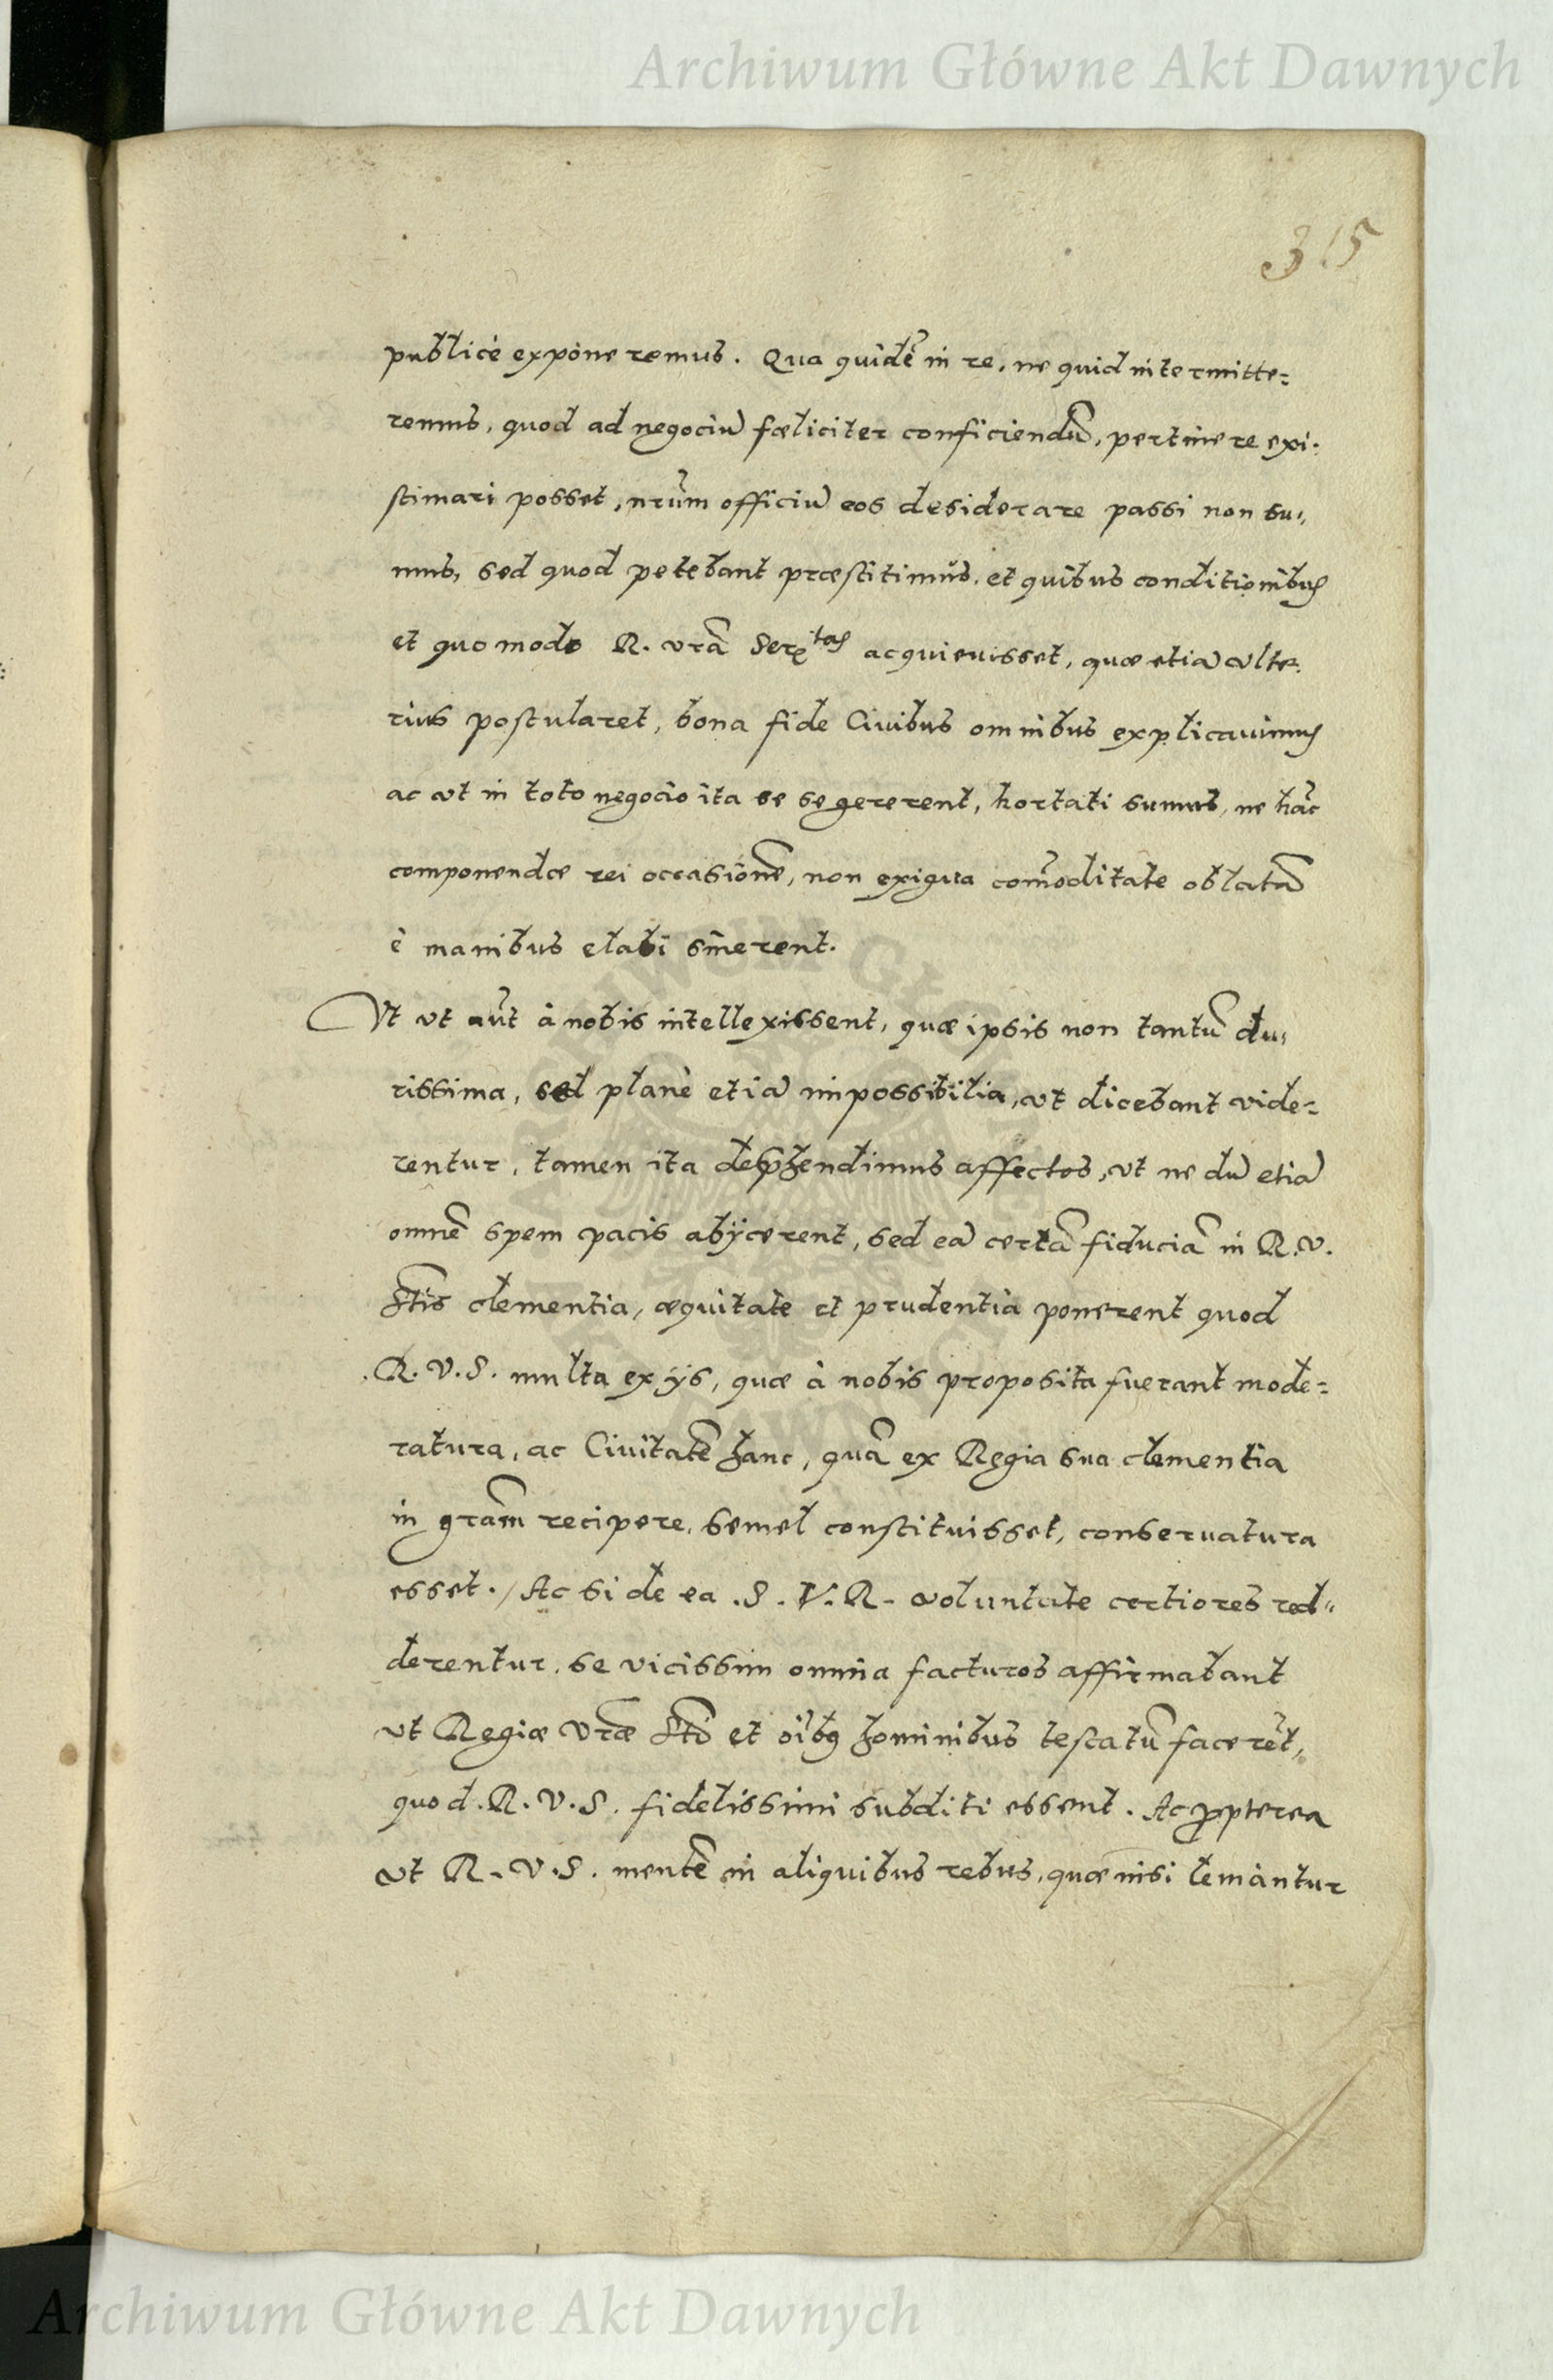 Archiwum Główne Akt Dawnych
315
publicè exponeremus. Qua quidē in re, ne quid intermitte=
remus, quod ad negociū fœliciter conficiendū, pertinere exi-
stimari posset, nrūm officiū eos desiderare passi non su-
mus, sed quod petebant præstitimus, et quibus conditionibus
et quo modo R. vrā Serᵗᵃˢ acquieuisset, quæ etiā vlte-
rius postularet, bona fide Ciuibus omnibus explicauimus
ac vt in toto negocio ita se se gererent, hortati sumus, ne hāc
componendæ rei occasionē, non exigua com̄oditate oblatā
è manibus elabi sinerent.
Vt vt aūt à nobis intellexissent, quæ ipsis non tantū du-
rissima, sed planè etiā impossibilia, vt dicebant vide=
rentur, tamen ita dep̄hendimus affectos, vt ne dū etiā
omnē spem pacis abijcerent, sed eā certā fiduciā in R. V.
Stis clementia, æquitate et prudentia ponerent quod
R. V. S. multa ex ijs, quæ à nobis proposita fuerant mode=
ratura, ac Ciuitatē hanc, quā ex Regia sua clementia
in grām recipere, semel constituisset, conseruatura
esset. / Ac si de ea .S. V. R. voluntate certiores red-
derentur, se vicissim omnia facturos affirmabant
vt Regiæ Vræ Sti et oībꝫ hominibus testatū facerēt,
quod .R. V. S. fidelissimi subditi essent. Ac ꝓpterea
vt R. V. S. mentē in aliquibus rebus, quæ nisi
Archiwum Główne Akt Dawnych